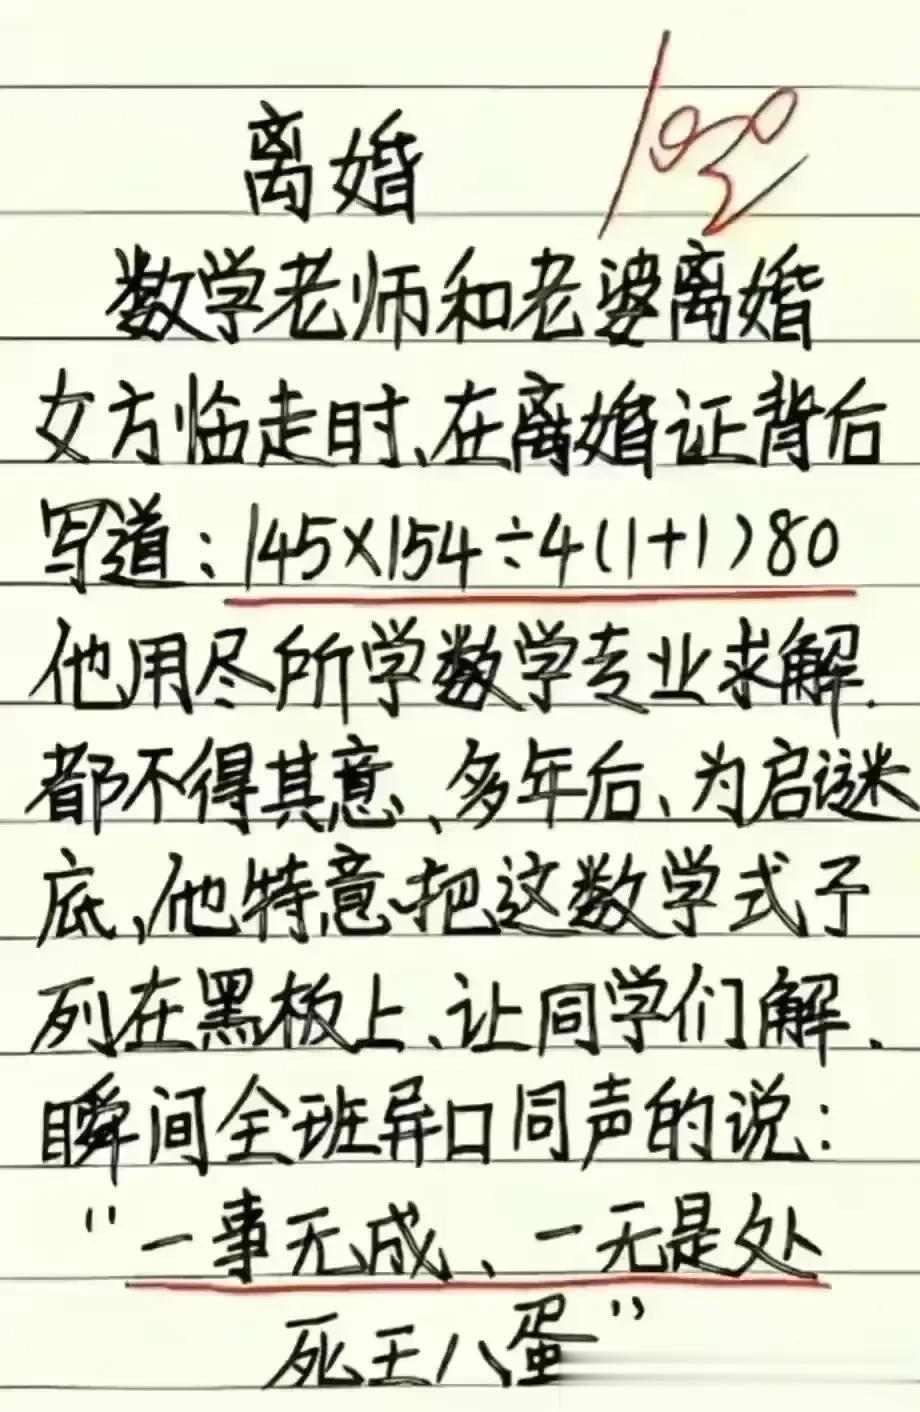 离婚
100
数学老师和老婆离婚
女方临走时、在离婚证背后
写道：145×154÷4(1+1)80
他用尽所学数学专业求解.
都不得其意、多年后、为启谜
底、他特意把这数学式子
列在黑板上、让同学们解.
瞬间全班异口同声的说：
“一事无成、一无是处
死王八蛋”